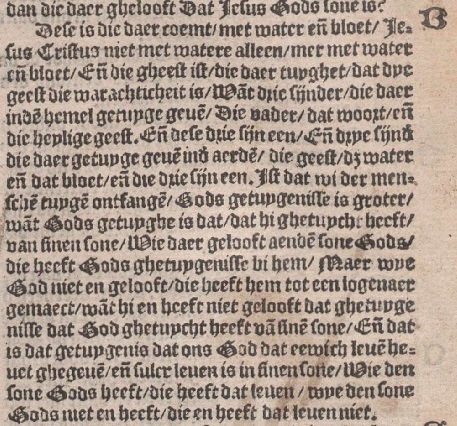 dan die daer ghelooft Dat Jesus Gods sone is?
B
Dese is die daer coemt/met water en̄ bloet/ Je⸗
sus Cristus niet met watere alleen/mer met water
en̄ bloet/ En̄ die gheest ist/die daer tuyghet/dat dye
geest die warachticheit is/ Wāt drie sijnder/die daer
indē hemel getuyge geuē/ Die vader/ dat woort/en̄
die heylige geest. En̄ dese drie sijn een/ En̄ drye sijnd̛
die daer getuyge geuē ind̛ aerdē/ die geest/dz water
en̄ dat bloet/en̄ die drie sijn een. Ist dat wi der men⸗
schē tuygē ontfangē/ Gods getuygenisse is groter/
wāt Gods getuyghe is dat/dat hi ghetuycht heeft/
van sinen sone/Wie daer gelooft aendē sone Gods/
die heeft Gods ghetuygenisse bi hem/ Maer wye
God niet en gelooft/die heeft hem tot een logenaer
gemaect/wāt hi en heeft niet gelooft dat ghetuyge
nisse dat God ghetuycht heeft vā sinē sone/En̄ dat
is dat getuygenis dat ons God dat eewich leuē he⸗
uet ghegeuē/en̄ sulcr leuen is in sinen sone/ Wie den
sone Gods heeft/die heeft dat leuen/ wye den sone
Gods niet en heeft/die en heeft dat leuen niet.